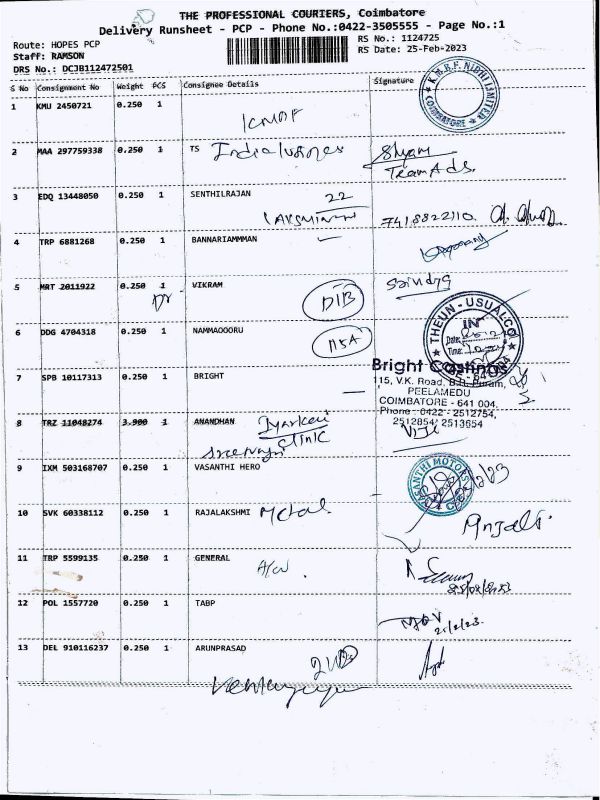 THE PROFESSIONAL COURIERS, Coimbatore
Delivery Runsheet - PCP - Phone No.:0422-3505555 - Page No.:1
Route: HOPES PCP
RS No.: 1124725
Staff: RAMSON
RS Date: 25-Feb-2023
DRS No.: DCJB112472501
S No Consignment No Weight PCS Consignee Details Signature
1 KMU 2450721 0.250 1
K.M.B.F. NIDHI LIMITED
COIMBATORE
2 MAA 297759338 0.250 1 TS
Shyam
TeamAds.
3 EDQ 13448050 0.250 1 SENTHILRAJAN 22
7418822110
4 TRP 6881268 0.250 1 BANNARIAMMMAN
5 MRT 2011922 0.250 1 VIKRAM
DIB
6 DDG 4704318 0.250 1 NAMMAOOORU
115A
THEUN-USUAL.CO
IN
Date:
Time:
7 SPB 10117313 0.250 1 BRIGHT
Bright Castings
115, V.K. Road, B.R. Puram,
PEELAMEDU
COIMBATORE - 641 004.
Phone : 0422 - 2512754,
2512854, 2513654
8 TRZ 11048274 3.900 1 ANANDHAN
Clinic
9 IXM 503168707 0.250 1 VASANTHI HERO
VASANTHI MOTORS
10 SVK 60338112 0.250 1 RAJALAKSHMI Metal
Anjali
11 TRP 5599135 0.250 1 GENERAL
12 POL 1557720 0.250 1 TABP
13 DEL 910116237 0.250 1 ARUNPRASAD